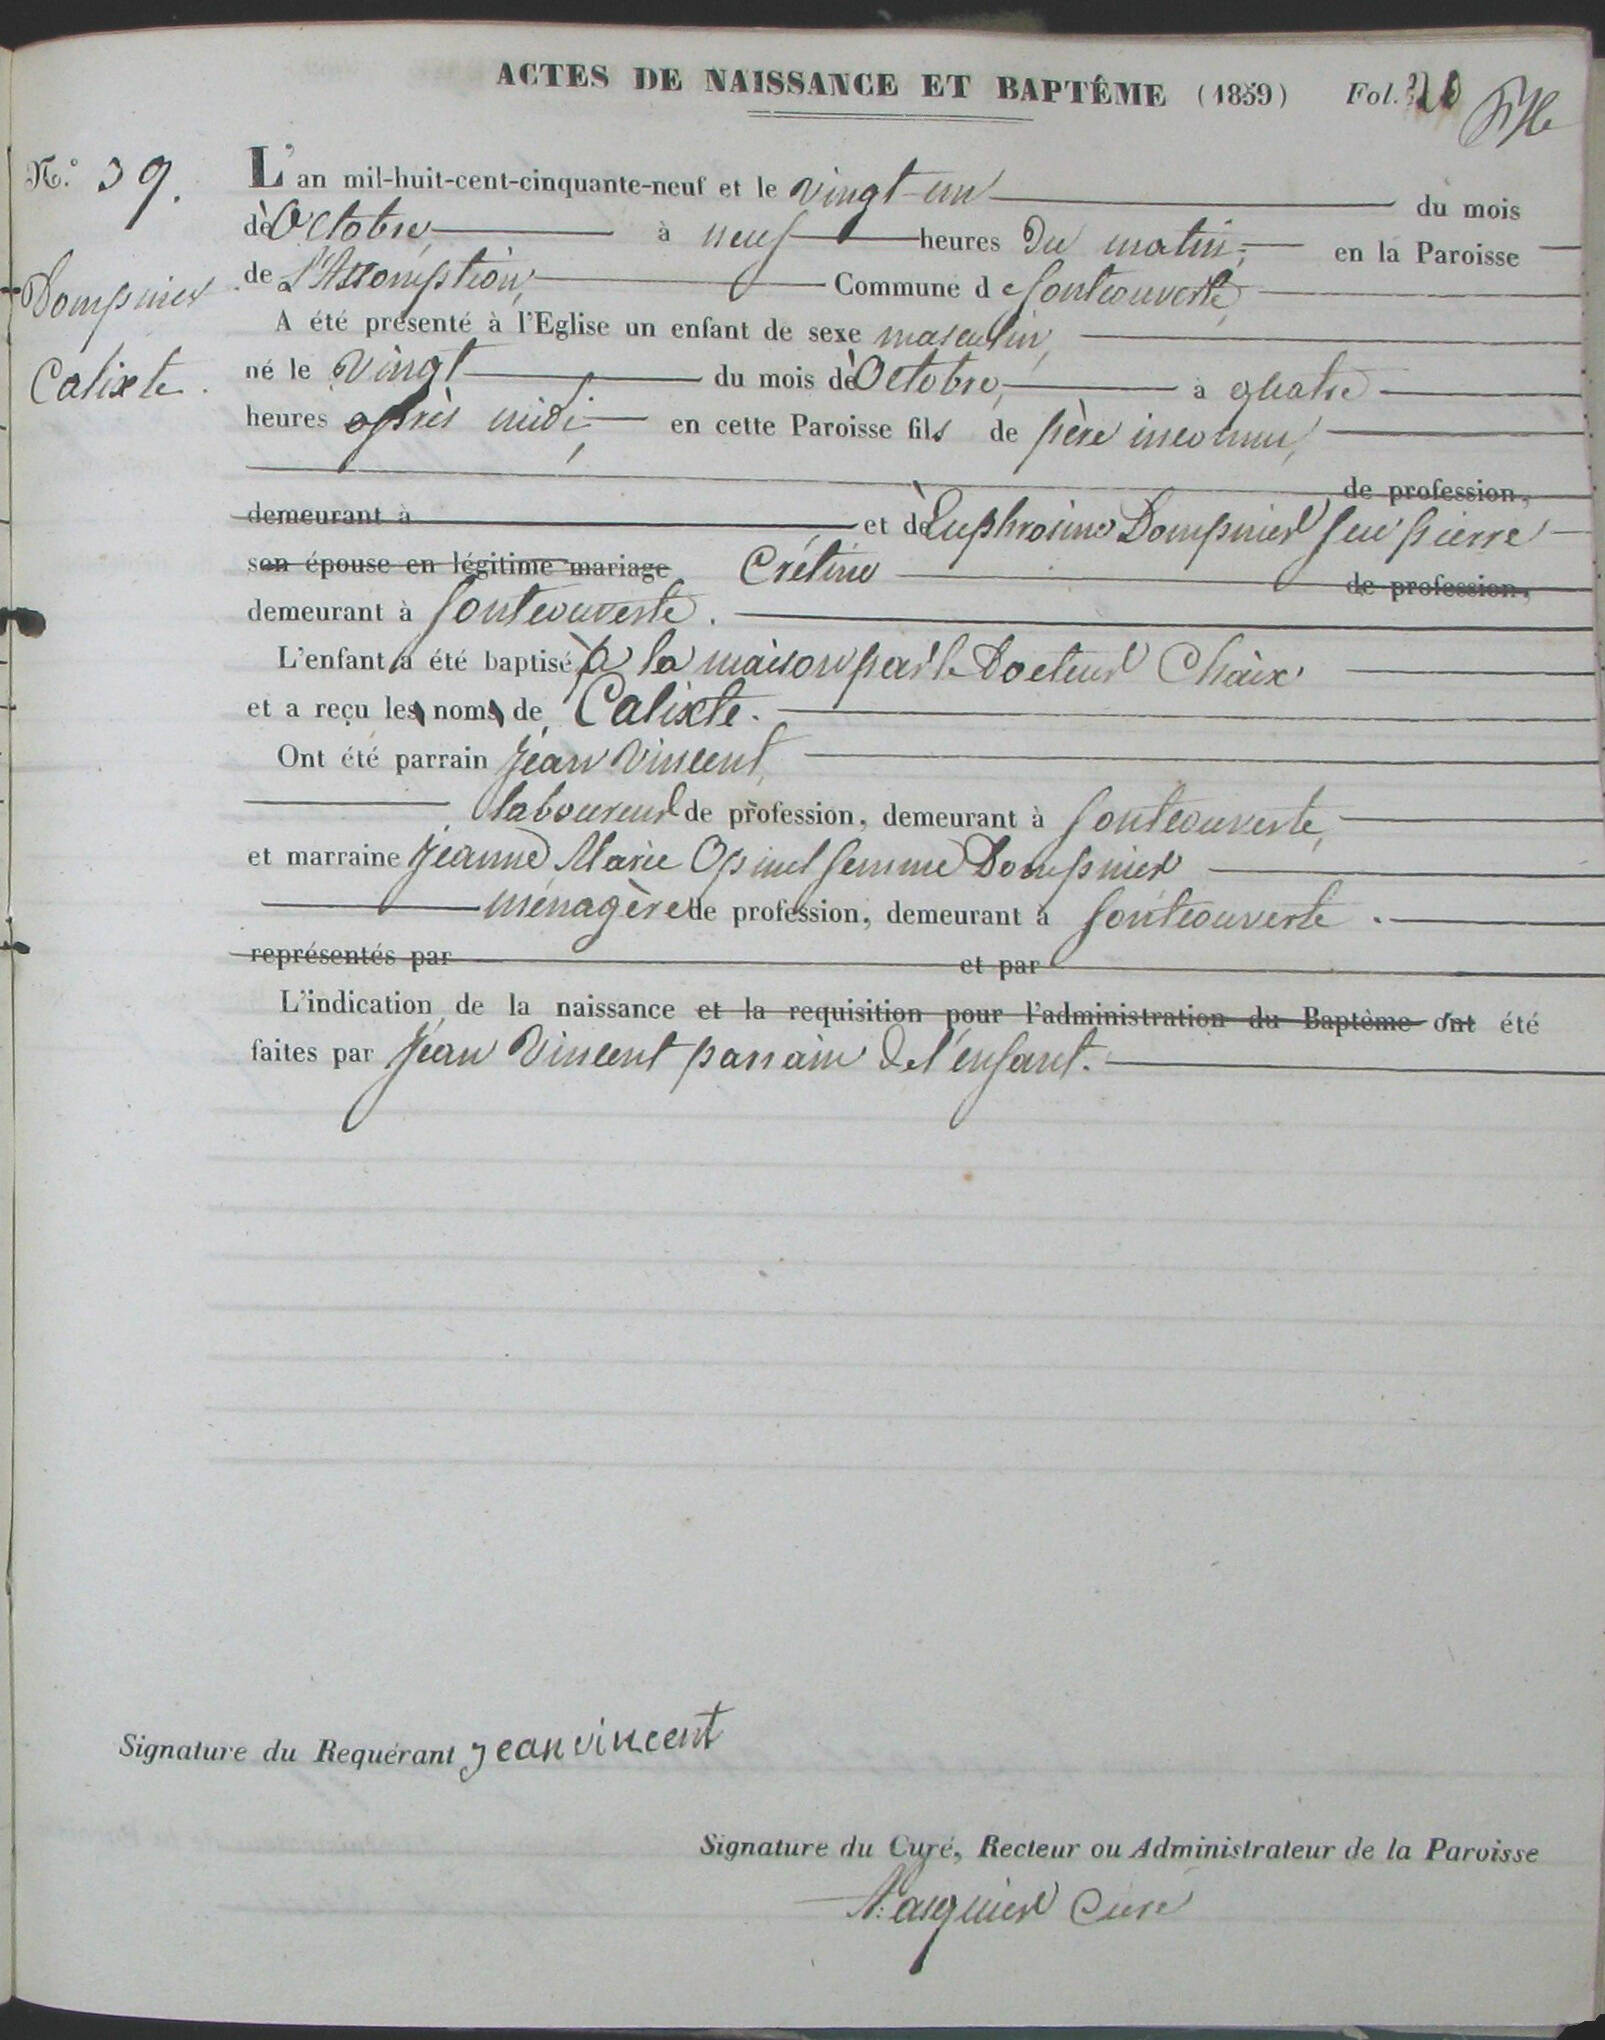 ACTES DE NAISSANCE ET BAPTÊME (1859) Fol.
N.º 39.
L'an mil-huit-cent-cinquante-neuf et le vingt-un du mois
de Octobre à neuf heures du matin, en la Paroisse
Dompnier
de L'Assomption, Commune de Fontcouverte,
A été présenté à l'Eglise un enfant de sexe masculin,
Calixte.
né le vingt du mois de Octobre, à quatre
heures après midi, en cette Paroisse fils de père inconnu,
de profession,
demeurant à et de Euphrosine Dompnier feu pierre
son épouse en légitime mariage Crétine de profession,
demeurant à fontcouverte.
L'enfant a été baptisé à la maison par le Docteur Chaix
et a reçu les noms de Calixte.
Ont été parrain Jean Vincent,
laboureur de profession, demeurant à fontcouverte,
et marraine Jeanne Marie Opinel femme Dompnier
ménagère de profession, demeurant à fontcouverte.
représentés par et par
L'indication de la naissance et la requisition pour l'administration du Baptême ont été
faites par Jean Vincent parrain de l'enfant.
Signature du Requérant jean vincent
Signature du Curé, Recteur ou Administrateur de la Paroisse
Curé